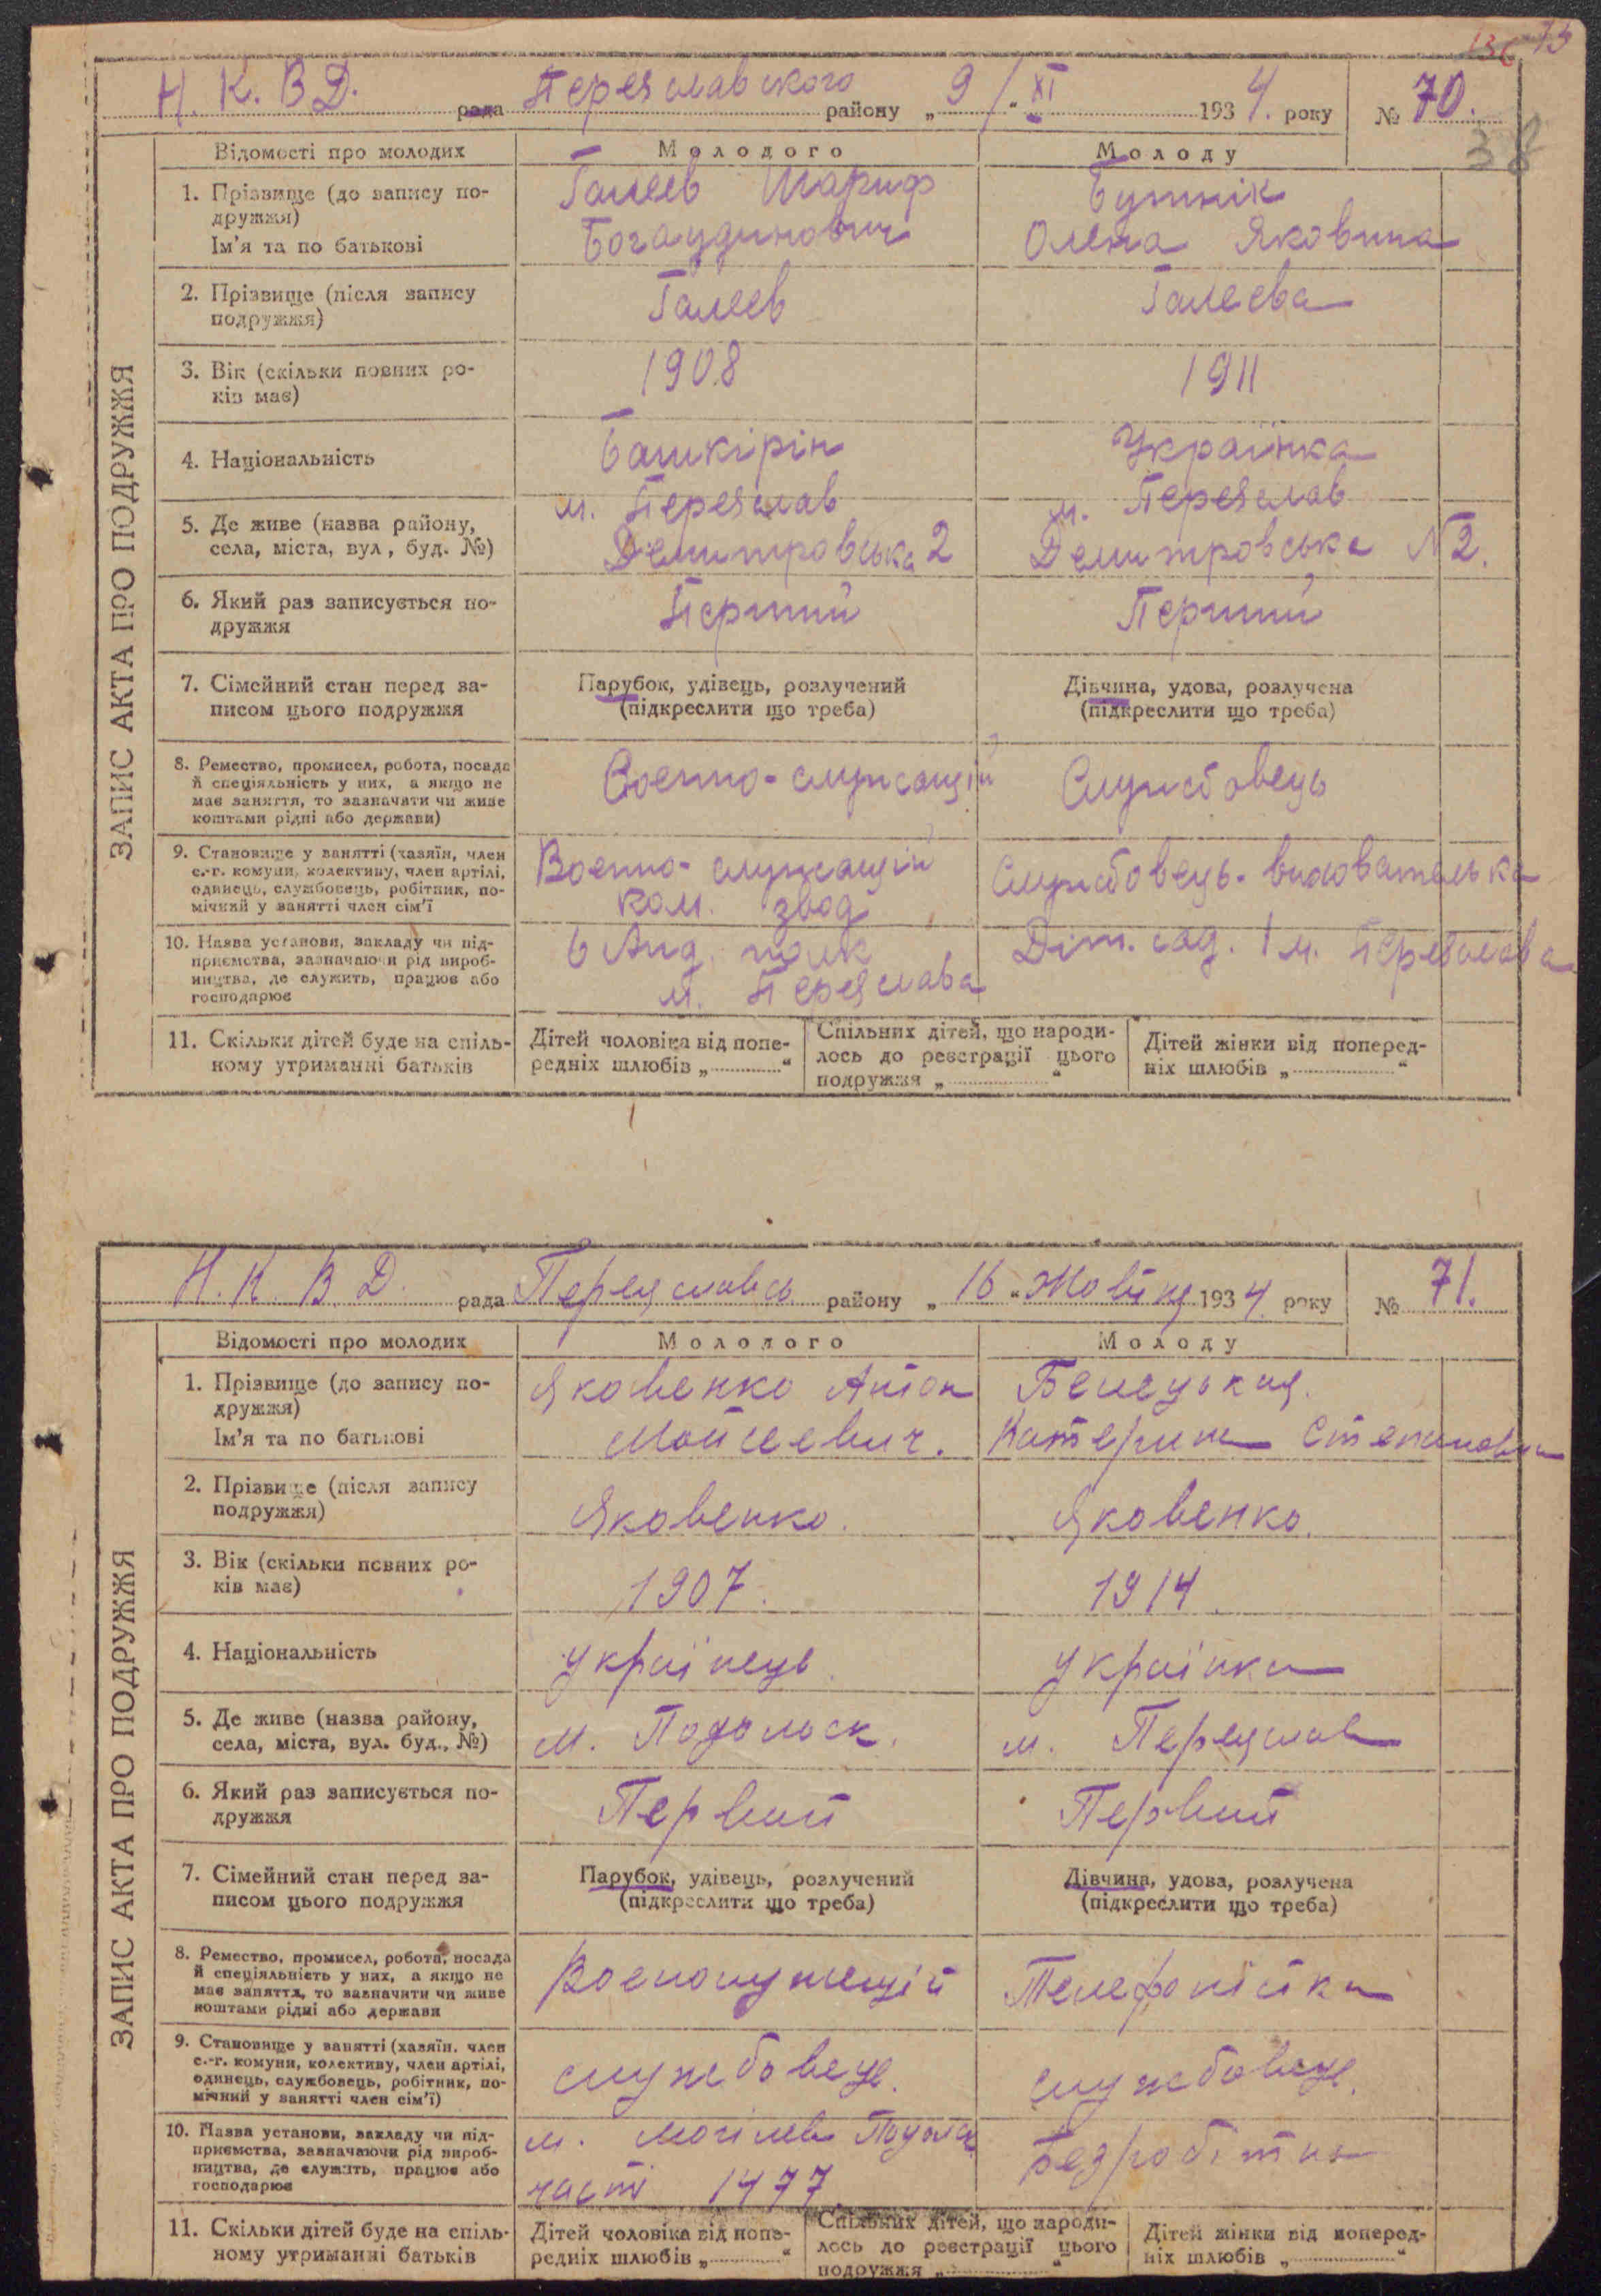 136 73
Н. К. В Д. рада Переяславского району „ 9 / “ XI 1934. року № 70.
38
Відомості про молодих Молодого Молоду
ЗАПИС АКТА ПРО ПОДРУЖЖЯ
1. Прізвище (до запису по-
дружжя)
Ім’я та по батькові
Галеев Шариф
Богаудинович
Бутнік
Олена Яковина
2. Прізвище (після запису
подружжя)
Галеев
Галеева
3. Вік (скільки повних ро-
ків має)
1908
1911
4. Національність
Башкірін
Українка
5. Де живе (назва району,
села, міста, вул, буд. №)
м. Переяслав
Демитровська 2
м. Переяслав
Демитровська № 2.
6. Який раз записується по-
дружжя
Перший
Перший
7. Сімейний стан перед за-
писом цього подружжя
Парубок, удівець, розлучений
(підкреслити що треба)
Дівчина, удова, розлучена
(підкреслити що треба)
8. Ремество, промисел, робота, посада
й спеціяльність у них, а якщо не
має заняття, то зазначити чи живе
коштами рідні або держави)
Военно-служащій
Службовець
9. Становище у занятті (хазяїн, член
с.-г. комуни, колективу, член артілі,
одинець, службовець, робітник, по-
мічний у занятті член сім’ї
Военно-служащій
ком. звод
Службовець-вихователька
10. Назва установи, закладу чи під-
приємства, зазначаючи рід вироб-
ництва, де служить, працює або
господарює
полк
м. Переяслава
Діт. сад. 1 м. Переяслава
11. Скільки дітей буде на спіль-
ному утриманні батьків
Дітей чоловіка від попе-
редніх шлюбів „ “
Спільних дітей, що народи-
лось до реєстрації цього
подружжя „ “
Дітей жінки від поперед-
ніх шлюбів „ “
Н. К. В. Д. рада Переяславсь району „ 16 “ Жовтня 1934. року № 71.
Відомості про молодих Молодого Молоду
ЗАПИС АКТА ПРО ПОДРУЖЖЯ
1. Прізвище (до запису по-
дружжя)
Ім’я та по батькові
Яковенко Антон
Мойсеевич.
Белецькая.
Катерина Степановна
2. Прізвище (після запису
подружжя)
Яковенко.
Яковенко.
3. Вік (скільки повних ро-
ків має)
1907.
1914.
4. Національність
українець
українка
5. Де живе (назва району,
села, міста, вул. буд., №)
м. Подольск.
м. Переяслав
6. Який раз записується по-
дружжя
Первий
Первий
7. Сімейний стан перед за-
писом цього подружжя
Парубок, удівець, розлучений
(підкреслити що треба)
Дівчина, удова, розлучена
(підкреслити що треба)
8. Ремество, промисел, робота, посада
й спеціяльність у них, а якщо не
має заняття, то зазначити чи живе
коштами рідні або держави
Военослужещій
Телефоністка
9. Становище у занятті (хазяїн. член
с.-г. комуни, колективу, член артілі,
одинець, службовець, робітник, по-
мічний у занятті член сім’ї)
службовець.
службовець.
10. Назва установи, закладу чи під-
приємства, зазначаючи рід вироб-
ництва, де служить, працює або
господарює
м. Могілев Подольс
часті 1477.
Безробітна
11. Скільки дітей буде на спіль-
ному утриманні батьків
Дітей чоловіка від попе-
редніх шлюбів „ “
Спільних дітей, що народи-
лось до реєстрації цього
подружжя „ “
Дітей жінки від поперед-
ніх шлюбів „ “